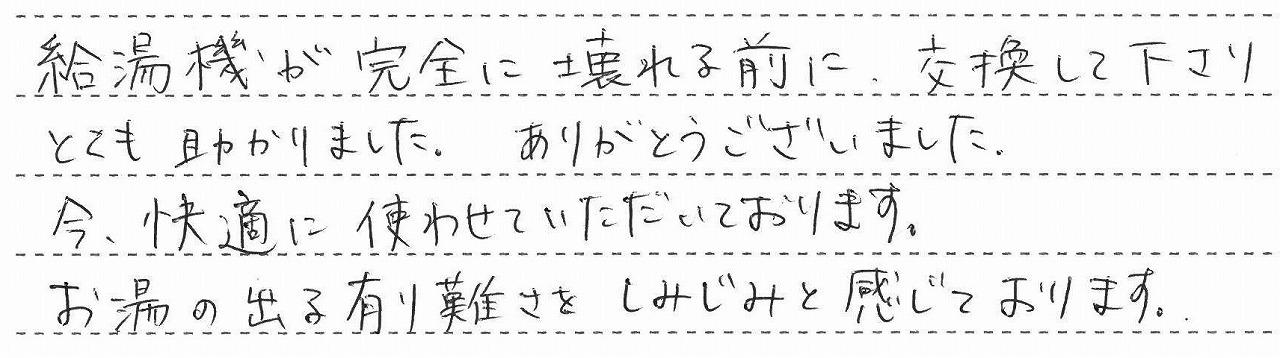 給湯機が完全に壊れる前に、交換して下さり
とても助かりました。 ありがとうございました。
今、快適に使わせていただいております。
お湯の出る有り難さをしみじみと感じております。